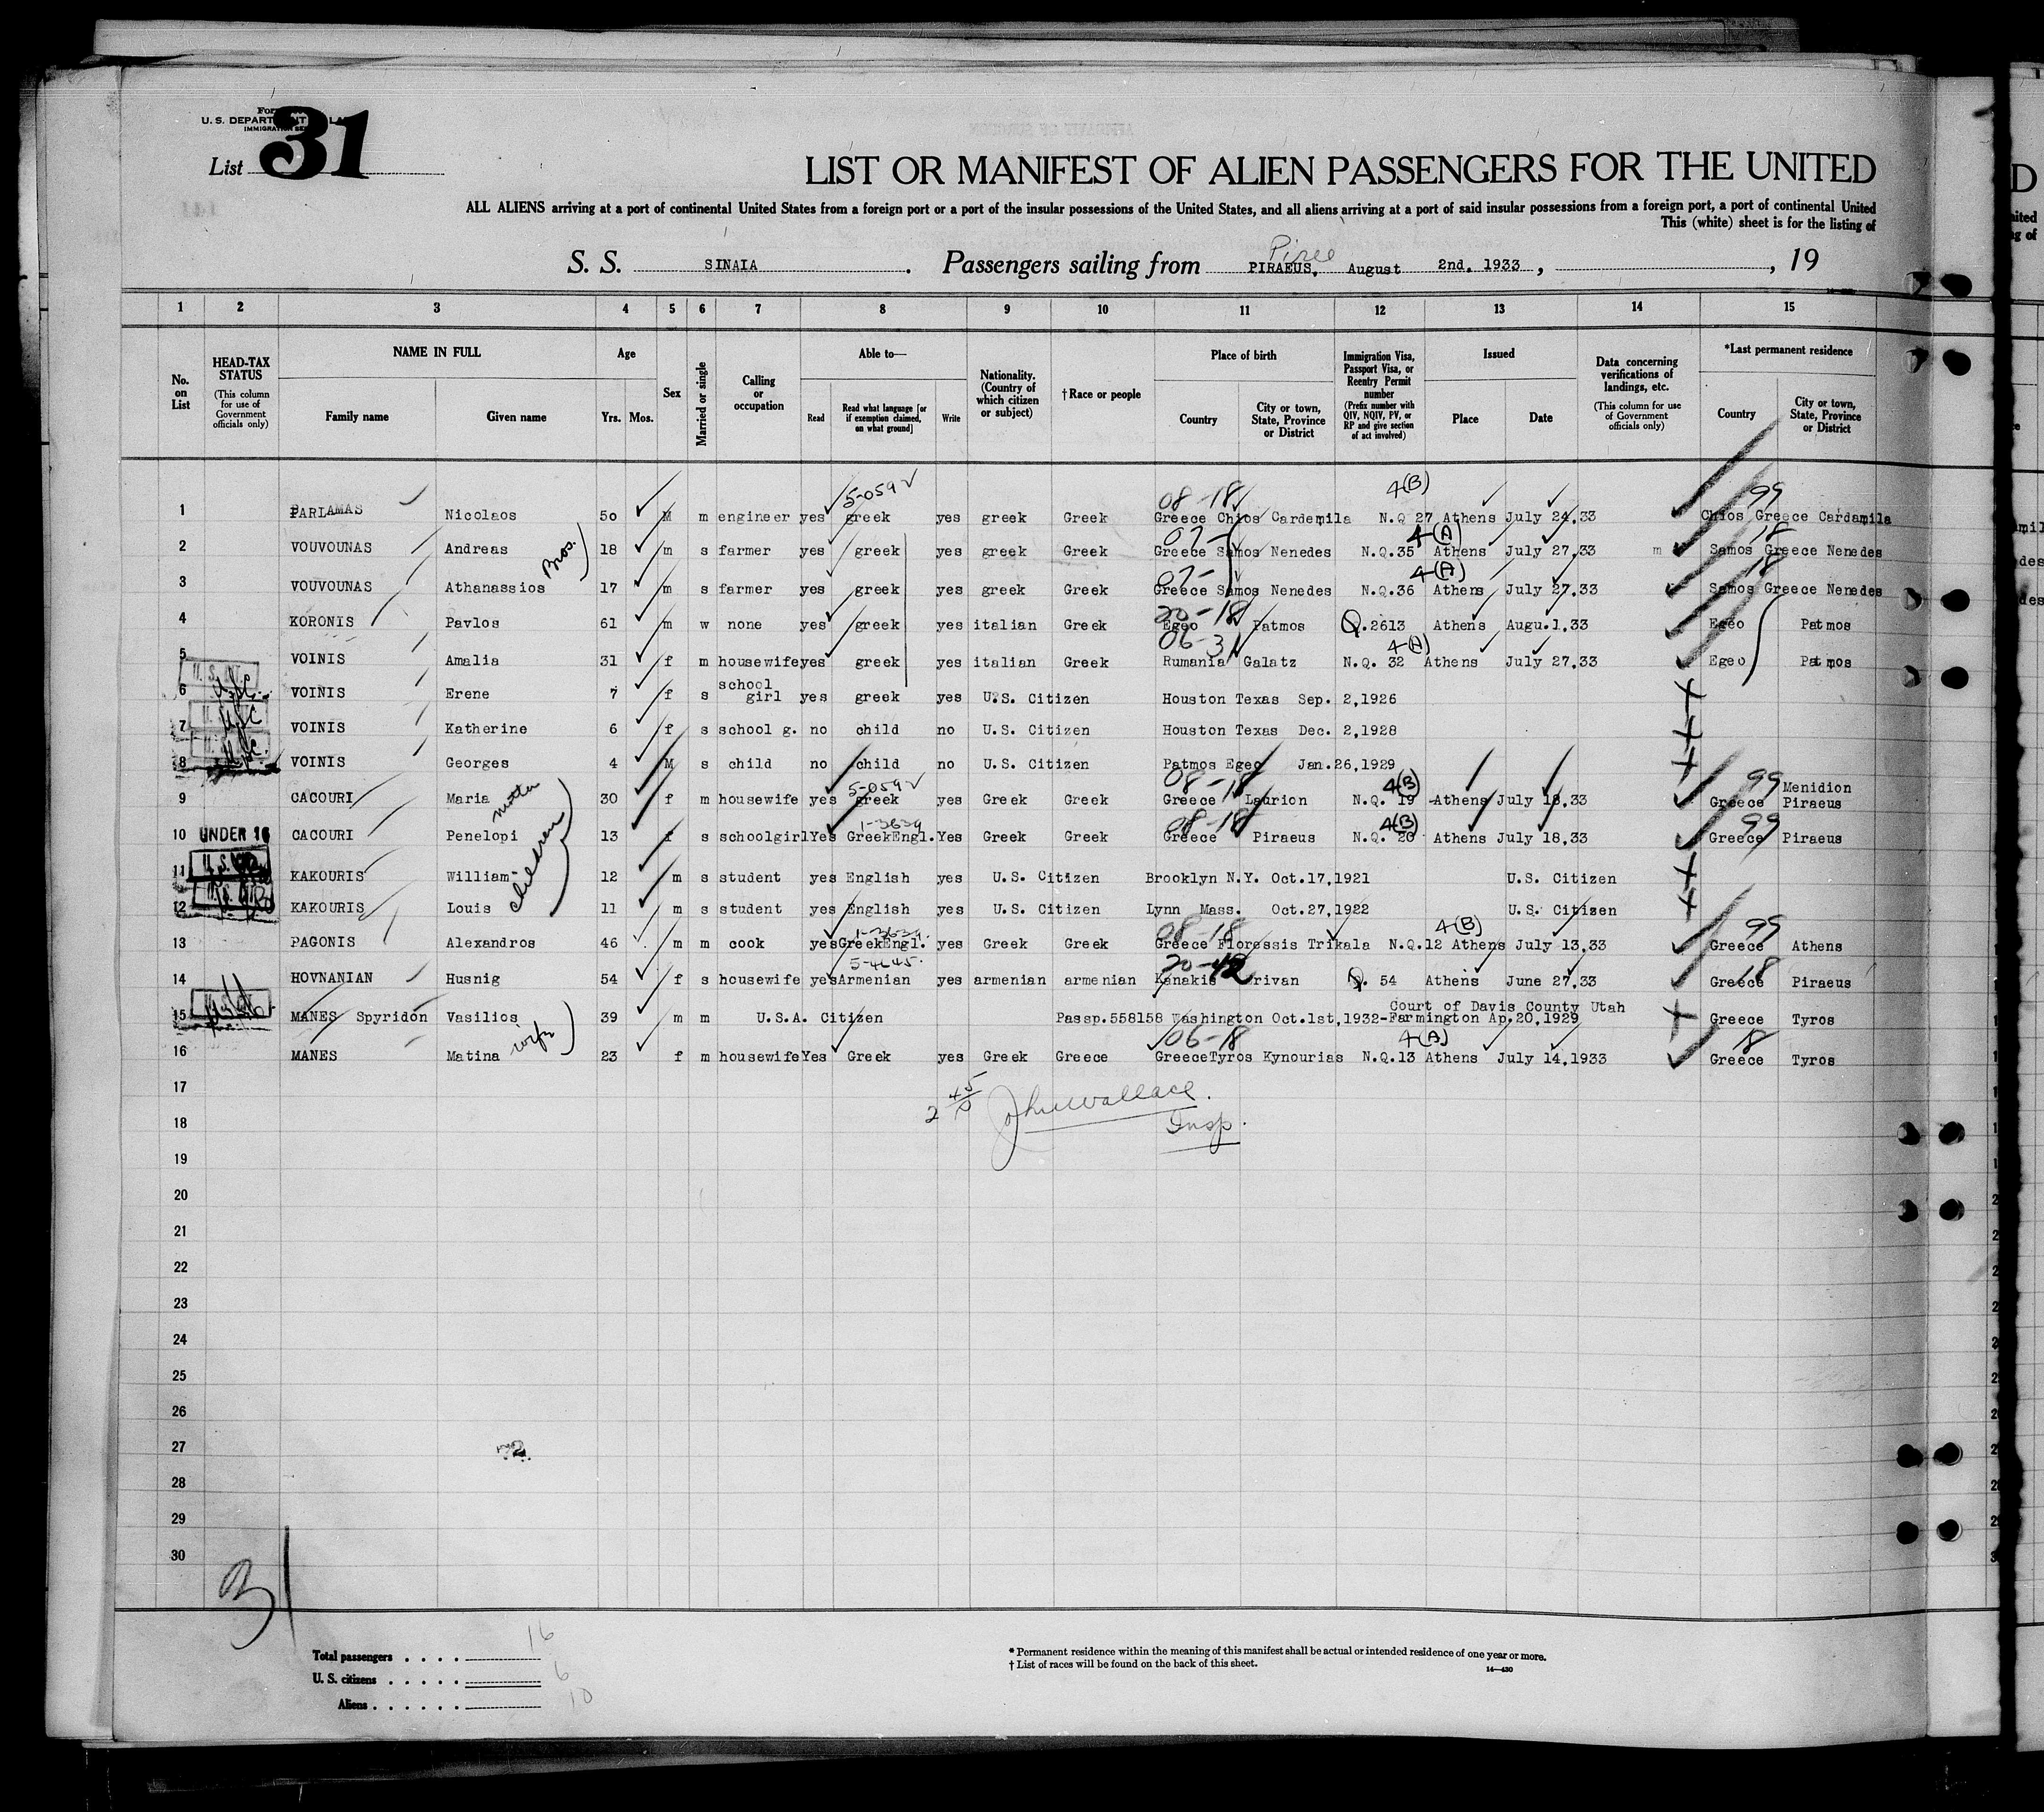 List 31
LIST OR MANIFEST OF ALIEN PASSENGERS FOR THE UNITED
ALL ALIENS arriving at a port of continental United States from a foreign port or a port of the insular possessions of the United States, and all aliens arriving at a port of said insular possessions from a foreign port, a port of continental United
This (white) sheet is for the listing of
Piree
S. S. SINAIA. Passengers sailing from PIRAEUS, August 2nd, 1933, , 19
1 2 3 4 5 6 7 8 9 10 11 12 13 14 15
No. on List
HEAD-TAX STATUS
(This column for use of Government officials only)
NAME IN FULL
Family name
Given name
Age
Yrs. Mos.
Sex
Married or single
Calling or occupation
Able to—
Read
Read what language [or if exemption claimed, on what ground]
Write
Nationality. (Country of which citizen or subject)
† Race or people
Place of birth
Country
City or town, State, Province or District
Immigration Visa, Passport Visa, or Reentry Permit number
(Prefix number with QIV, NQIV, PV, or RP and give section of act involved)
Issued
Place
Date
Data concerning verifications of landings, etc.
(This column for use of Government officials only)
*Last permanent residence
Country
City or town, State, Province or District
5-059 08-18 4(B) 99
1 PARLAMAS Nicolaos 50 M m engineer yes greek yes greek Greek Greece Chios Cardemila N.Q 27 Athens July 24,33 Chios Greece Cardamila
Bros. 07- 4(A) 18
2 VOUVOUNAS Andreas 18 m s farmer yes greek yes greek Greek Greece Samos Nenedes N.Q.35 Athens July 27,33 m Samos Greece Nenedes
07- 4(A) 18
3 VOUVOUNAS Athanassios 17 m s farmer yes greek yes greek Greek Greece Samos Nenedes N.Q.36 Athens July 27,33 Samos Greece Nenedes
20-18
4 KORONIS Pavlos 61 m w none yes greek yes italian Greek Egeo Patmos Q.2613 Athens Augu.1,33 Egeo Patmos
06-31 4(A)
5 VOINIS Amalia 31 f m housewife yes greek yes italian Greek Rumania Galatz N.Q. 32 Athens July 27,33 Egeo Patmos
6 VOINIS Erene 7 f s school girl yes greek yes U.S. Citizen Houston Texas Sep. 2,1926
7 VOINIS Katherine 6 f s school g. no child no U.S. Citizen Houston Texas Dec. 2,1928
8 VOINIS Georges 4 M s child no child no U.S. Citizen Patmos Egeo Jan.26,1929
mother 5-059 08-18 4(B) 99
9 CACOURI Maria 30 f m housewife yes greek yes Greek Greek Greece Laurion N.Q. 19 Athens July 18,33 Greece Menidion Piraeus
children 1-3639 08-18 4(B) 99
10 UNDER 16 CACOURI Penelopi 13 f s schoolgirl Yes GreekEngl. Yes Greek Greek Greece Piraeus N.Q. 20 Athens July 18,33 Greece Piraeus
11 KAKOURIS William 12 m s student yes English yes U.S. Citizen Brooklyn N.Y. Oct.17,1921 U.S. Citizen
12 KAKOURIS Louis 11 m s student yes English yes U.S. Citizen Lynn Mass. Oct.27,1922 U.S. Citizen
1-3639 08-18 4(B) 99
13 PAGONIS Alexandros 46 m m cook yes GreekEngl. yes Greek Greek Greece Floressis Trikala N.Q.12 Athens July 13,33 Greece Athens
20-42 18
14 HOVNANIAN Husnig 54 f s housewife yes Armenian yes armenian armenian Kanakis rivan Q. 54 Athens June 27,33 Greece Piraeus
Court of Davis County Utah
15 MANES Spyridon Vasilios 39 m m U.S.A. Citizen Passp.558158 Washington Oct.1st,1932-Farmington Ap.20,1929 Greece Tyros
wife 06-18 4(A) 18
16 MANES Matina 23 f m housewife Yes Greek yes Greek Greece Greece Tyros Kynourias N.Q.13 Athens July 14,1933 Greece Tyros
17
John Wallace.
18 Insp.
19
20
21
22
23
24
25
26
27 72
28
29
30
31
Total passengers 16
U. S. citizens 6
Aliens 10
* Permanent residence within the meaning of this manifest shall be actual or intended residence of one year or more.
† List of races will be found on the back of this sheet.
14—430